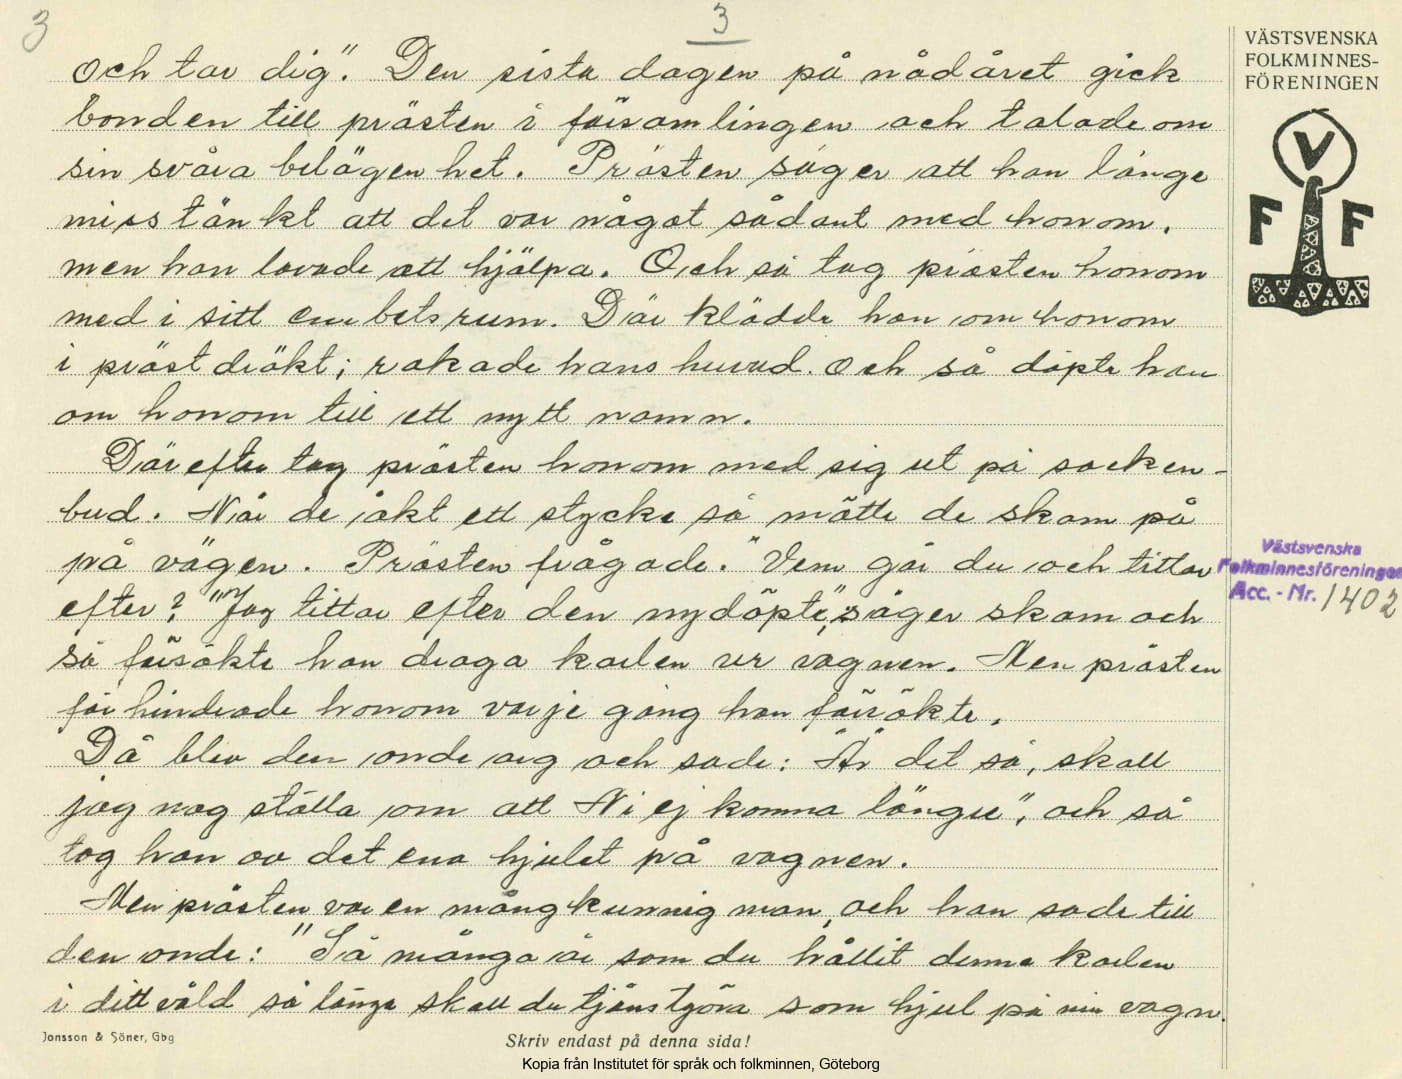 3
3
VÄSTSVENSKA
FOLKMINNES-
FÖRENINGEN
och tar dig". Den sista dagen på nådåret gick
bonden till prästen i församlingen och talade om
sin svåra belägenhet. Prästen säger att han länge
misstänkt att det var något sådant med honom,
men han lovade att hjälpa. Och så tog prästen honom
med i sitt embetsrum. Där klädde han om honom
i prästdräkt; rakade hans huvud. Och så döpte han
om honom till ett nytt namn.
Därefter tog prästen honom med sig ut på socken-
bud. När de åkt ett stycke så mötte de skam på
på vägen. Prästen frågade: "Vem går du och tittar
efter?" "Jag tittar efter den nydöpte", säger skam och
så försökte han draga karlen ur vagnen. Men prästen
förhindrade honom varje gång han försökte.
Då blev den onde arg och sade: "Är det så, skall
jag nog ställa om att Ni ej komma längre", och så
tog han av det ena hjulet på vagnen.
Men prästen var en mångkunnig man, och han sade till
den onde: "Så många år som du hållit denna karlen
i ditt våld så länge skall du tjänstgöra som hjul på min vagn.
V
F F
Västsvenska
Folkminnesföreningen
Acc. - Nr. 1402
Jonsson & Söner, Gbg
Skriv endast på denna sida!
Kopia från Institutet för språk och folkminnen, Göteborg